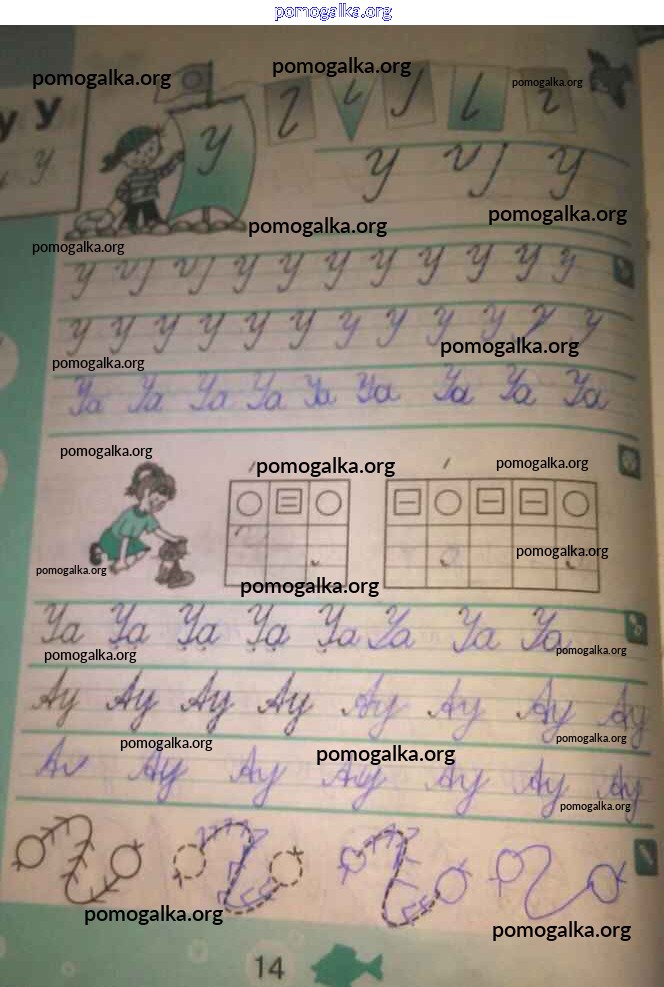 pomogalka.org
pomogalka.org
pomogalka.org
pomogalka.org
у У
У
У
У У У
pomogalka.org
pomogalka.org
pomogalka.org
У У У У У У У У У У У
У У У У У У У У У У У У
pomogalka.org
pomogalka.org
Уа Уа Уа Уа Уа Уа Уа Уа Уа
pomogalka.org
pomogalka.org
pomogalka.org
pomogalka.org
pomogalka.org
pomogalka.org
Уа Уа Уа Уа Уа Уа Уа Уа
pomogalka.org
pomogalka.org
Ау Ау Ау Ау Ау Ау Ау Ау
pomogalka.org
pomogalka.org
pomogalka.org
Ау Ау Ау Ау Ау Ау Ау
pomogalka.org
pomogalka.org
pomogalka.org
14